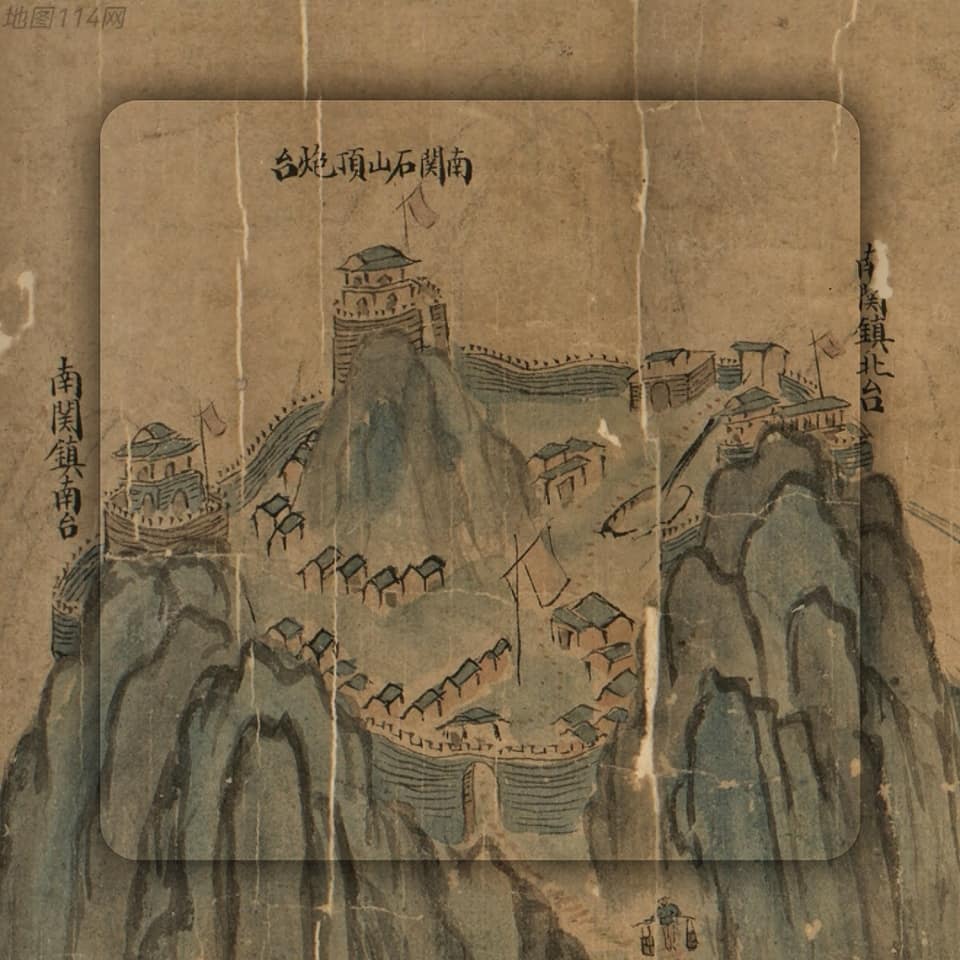 地图114网
南関石山頂炮台
南関鎮北台
南関鎮南台